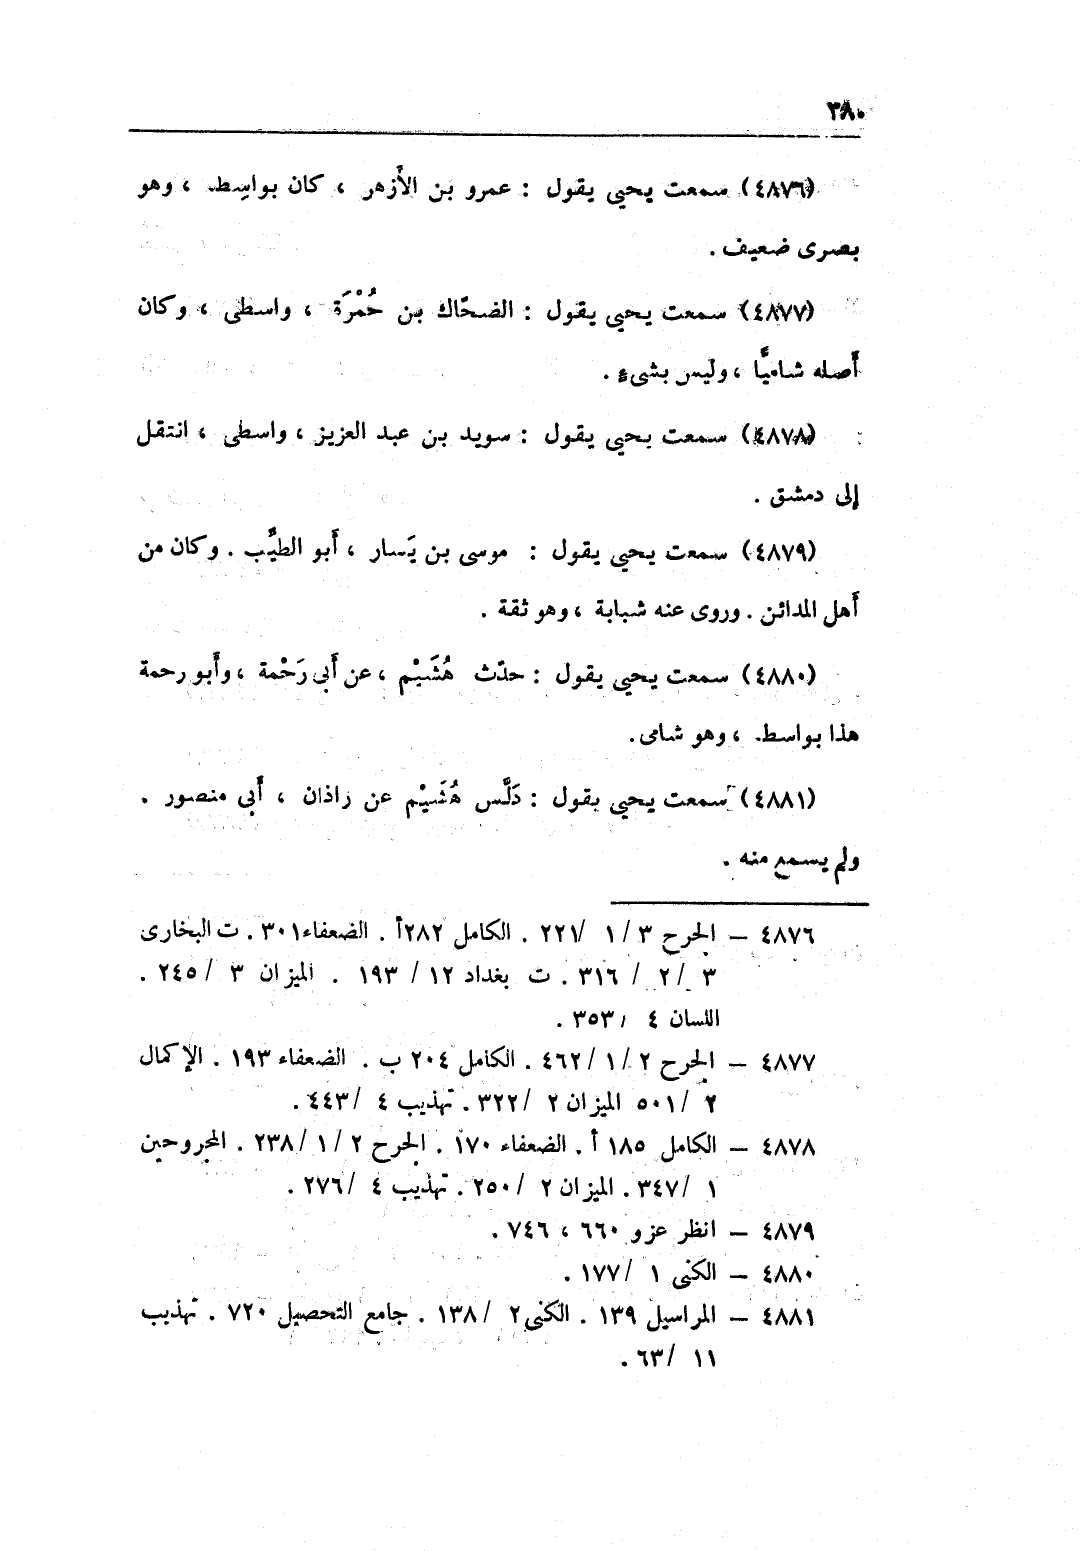 ٣٨٠
(٤٨٧٦) سمعت يحيى يقول : عمرو بن الأَزهر ، كان بواسِط ، وهو
بصرى ضعيف .
(٤٨٧٧) سمعت يحيى يقول : الضحّاك بن حُمْرَة ، واسطى ، وكان
أَصله شاميًّا ، وليس بشىءٍ .
(٤٨٧٨) سمعت يحيى يقول : سويد بن عبد العزيز ، واسطى ، انتقل
إلى دمشق .
(٤٨٧٩) سمعت يحيى يقول : موسى بن يَسار ، أَبو الطيِّب . وكان من
أَهل المدائن . وروى عنه شبابة ، وهو ثقة .
(٤٨٨٠) سمعت يحيى يقول : حدّث هُشَيْم ، عن أَبى رَحْمة ، وأَبو رحمة
هذا بواسط ، وهو شامى .
(٤٨٨١) سمعت يحيى يقول : دَلَّس هُشَيْم عن زاذان ، أَبى منصور .
ولم يسمع منه .
٤٨٧٦ – الجرح ٣ / ١ / ٢٢١ . الكامل ٢٨٢أ . الضعفاء ٣٠١ . ت البخارى
٣ / ٢ / ٣١٦ . ت بغداد ١٢ / ١٩٣ . الميزان ٣ / ٢٤٥ .
اللسان ٤ / ٣٥٣ .
٤٨٧٧ – الجرح ٢ / ١ / ٤٦٢ . الكامل ٢٠٤ ب . الضعفاء ١٩٣ . الإكمال
٢ / ٥٠١ الميزان ٢ / ٣٢٢ . تهذيب ٤ / ٤٤٣ .
٤٨٧٨ – الكامل ١٨٥ أ . الضعفاء ١٧٠ . الجرح ٢ / ١ / ٢٣٨ . المجروحين
١ / ٣٤٧ . الميزان ٢ / ٢٥٠ . تهذيب ٤ / ٢٧٦ .
٤٨٧٩ – انظر عزو ٦٦٠ ، ٧٤٦ .
٤٨٨٠ – الكنى ١ / ١٧٧ .
٤٨٨١ – المراسيل ١٣٩ . الكنى ٢ / ١٣٨ . جامع التحصيل ٧٢٠ . تهذيب
١١ / ٦٣ .